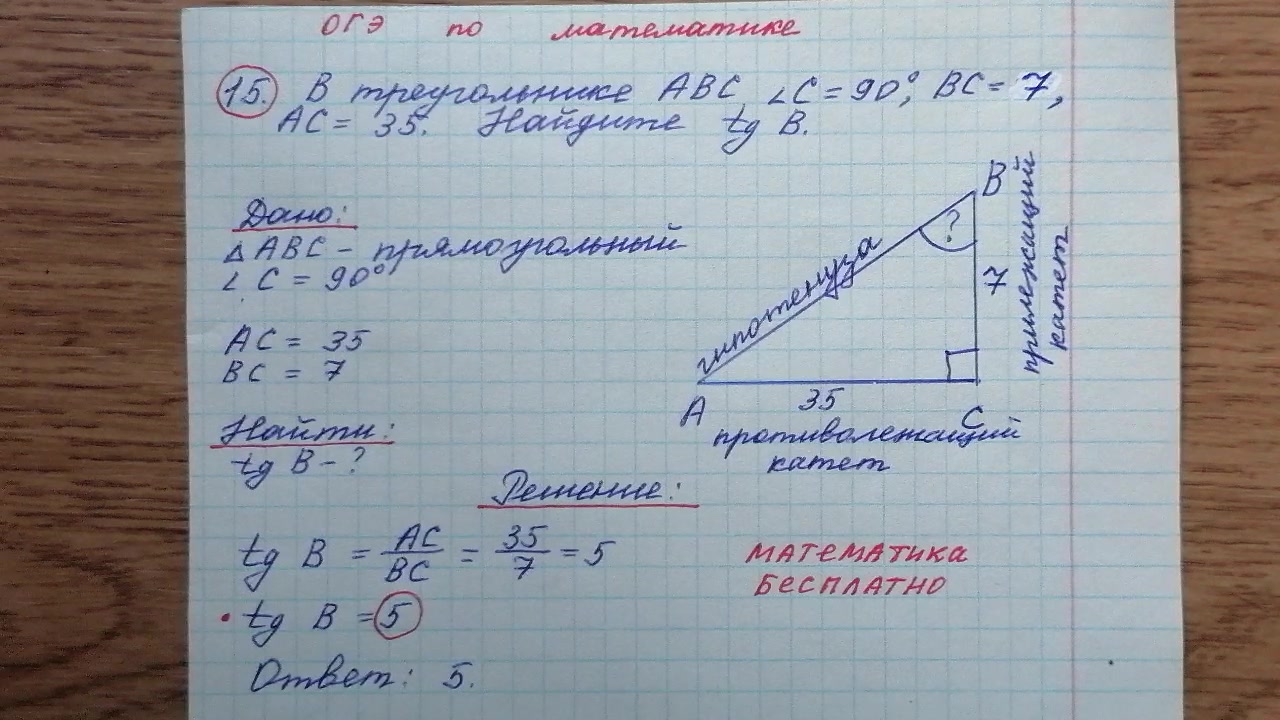 ОГЭ по математике
15. В треугольнике ABC ∠C = 90°, BC = 7,
AC = 35. Найдите tg B.
Дано:
△ABC - прямоугольный
∠C = 90°
AC = 35
BC = 7
Найти:
tg B - ?
B
?
гипотенуза
7
прилежащий
катет
A
35
C
противолежащий
катет
Решение:
tg B = AC/BC = 35/7 = 5
tg B = 5
Ответ: 5.
МАТЕМАТИКА
БЕСПЛАТНО